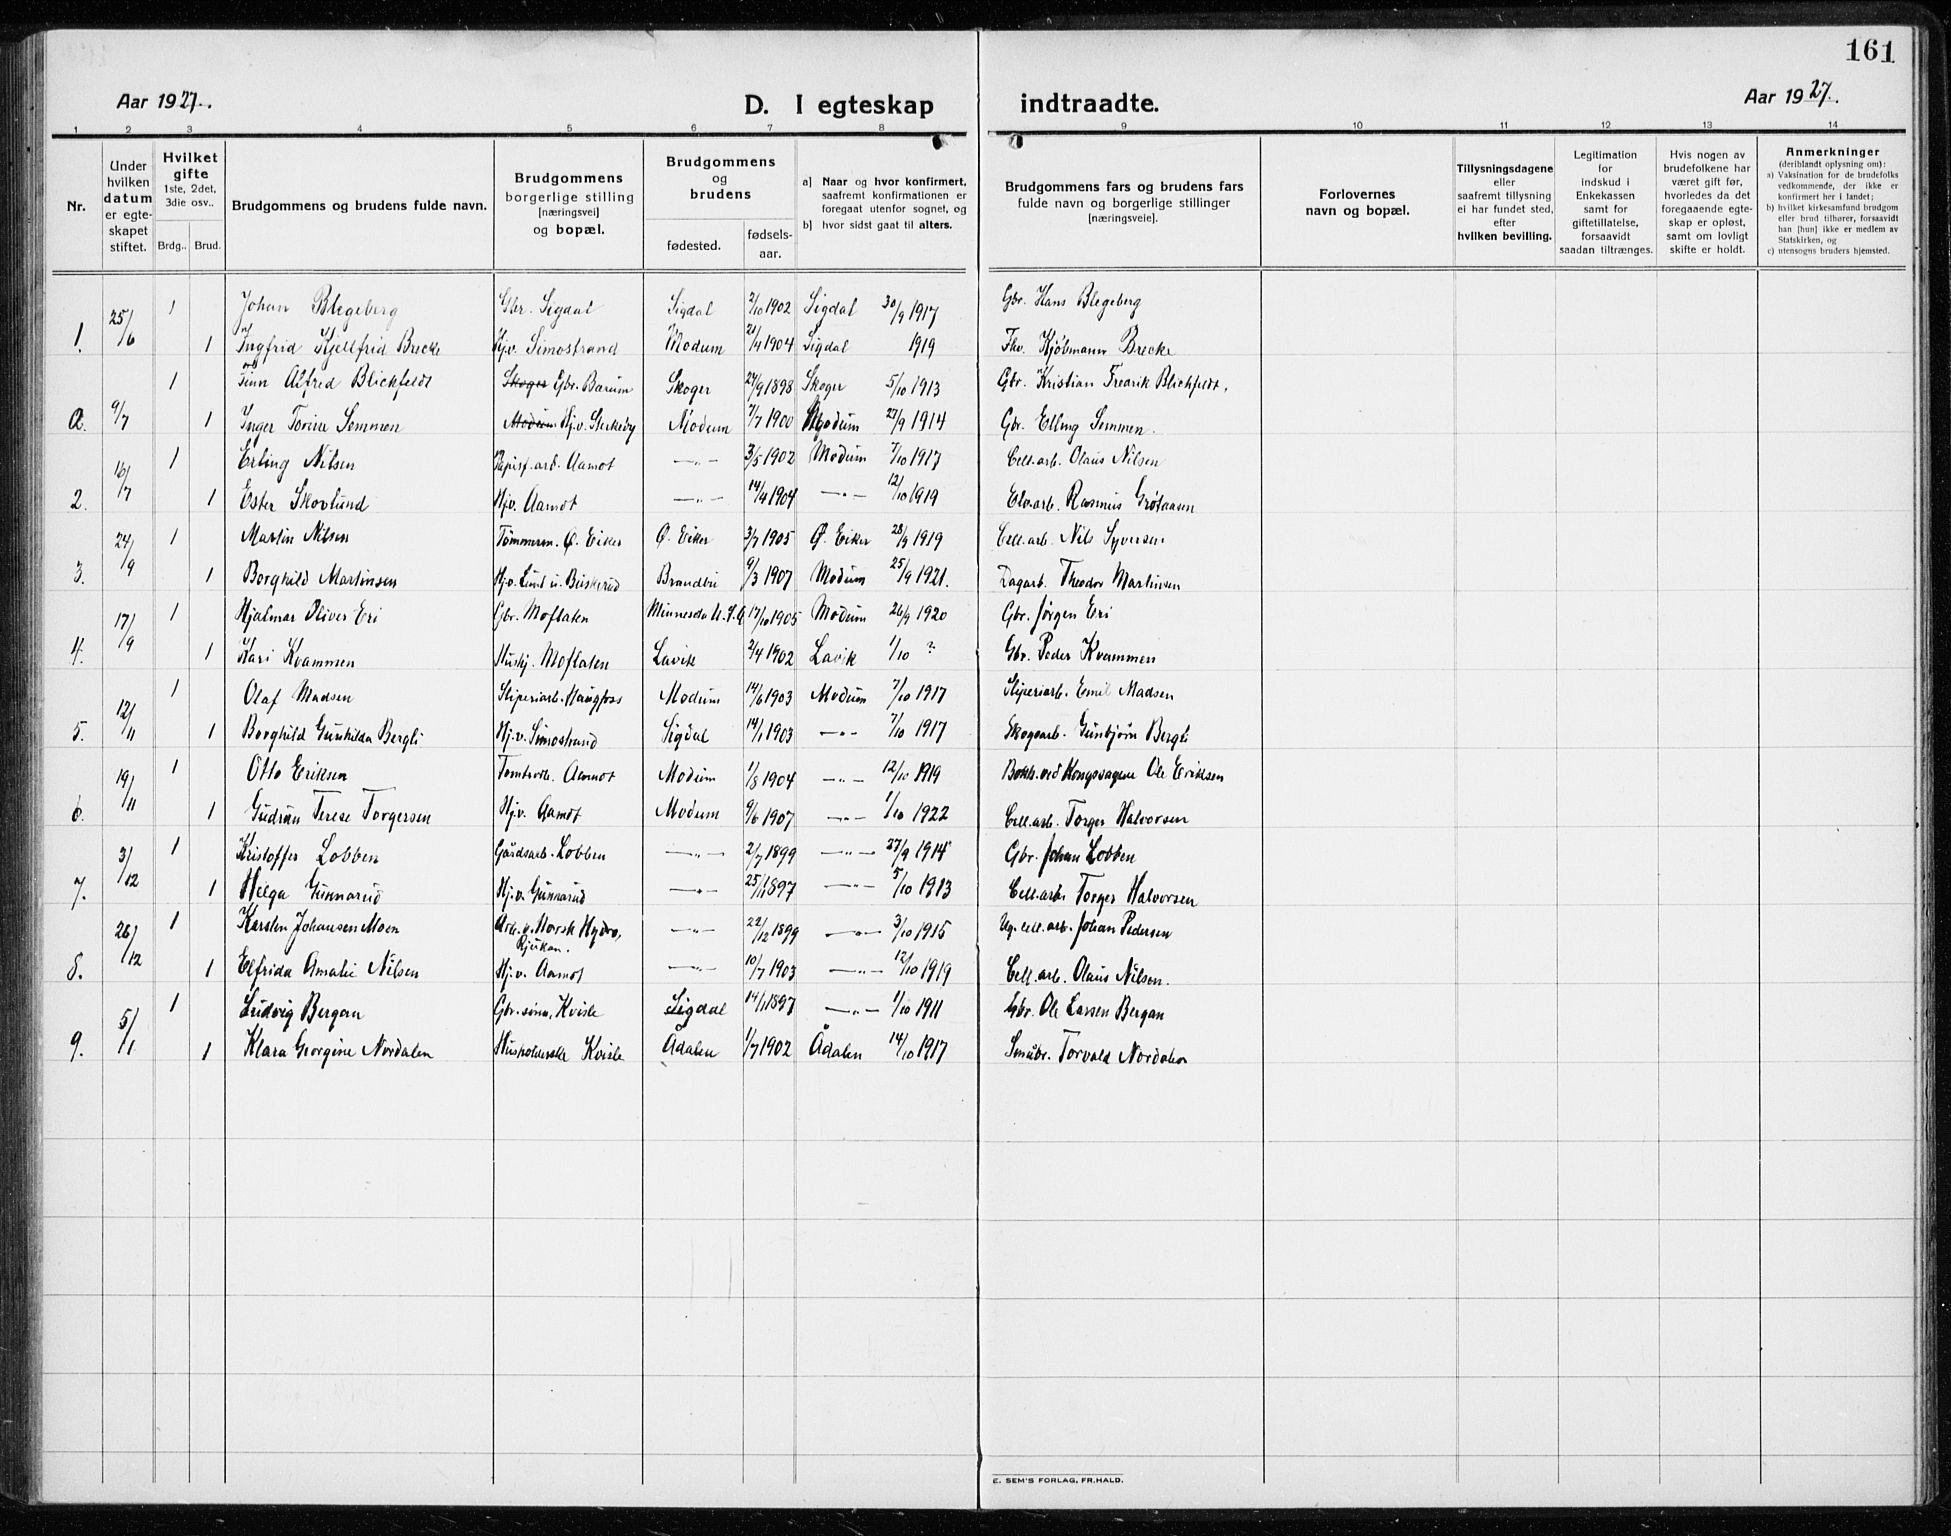 161
Aar 1927.
D. I egteskap indtraadte.
Aar 1927.
1 2 3 4 5 6 7 8 9 10 11 12 13 14
Nr.
Under hvilken datum er egteskapet stiftet.
Hvilket gifte 1ste, 2det, 3die osv..
Brdg.. Brud.
Brudgommens og brudens fulde navn.
Brudgommens borgerlige stilling [næringsvei] og bopæl.
Brudgommens og brudens
fødested. fødselsaar.
a] Naar og hvor konfirmert, saafremt konfirmationen er foregaat utenfor sognet, og
b] hvor sidst gaat til alters.
Brudgommens fars og brudens fars fulde navn og borgerlige stillinger [næringsveie].
Forlovernes navn og bopæl.
Tillysningsdagene eller saafremt tillysning ei har fundet sted, efter hvilken bevilling.
Legitimation for indskud i Enkekassen samt for giftetillatelse, forsaavidt saadan tiltrænges.
Hvis nogen av brudefolkene har været gift før, hvorledes da det foregaaende egteskap er opløst, samt om lovligt skifte er holdt.
Anmerkninger (deriblandt oplysning om):
a) Vaksination for de brudefolks vedkommende, der ikke er konfirmert her i landet;
b) hvilket kirkesamfund brudgom eller brud tilhører, forsaavidt han [hun] ikke er medlem av Statskirken, og
c) utensogns bruders hjemsted.
25/6 1 Johan Blegeberg Gbr. Sigdal Sigdal 2/10 1902 Sigdal 30/9 1917 Gbr. Hans Blegeberg
1. 1 Ingfrid Kjellfrid Brecke Hj.v. Simostrand Modum 21/4 1904 Sigdal 1919 Fhv. Kjøbmann Brecke
1 Finn Alfred Blickfeldt Skoger Gbr. Bærum Skoger 24/9 1898 Skoger 5/10 1913 Gbr. Kristian Fredrik Blichfeldt,
2. 9/7 1 Inger Torine Semmen Modum Hj.v. Modum 7/7 1900 Modum 27/9 1914 Gbr. Elling Semmen.
16/7 1 Erling Nilsen Papirf.arb. Aamot —„— 3/5 1902 Modum 7/10 1917 Cell.arb. Olaus Nilsen
2. 1 Ester Skovlund Hj.v. Aamot —„— 14/4 1904 —„— 12/10 1919 Elv.arb. Rasmus Grøtaasen
24/9 1 Martin Nilsen Tømmerm. Ø. Eiker Ø. Eiker 3/7 1905 Ø. Eiker 28/9 1919 Cell.arb. Nils Syversen
3. 1 Borghild Martinsen Hj.v. Lunt u. Buskerud Brandbu 9/3 1907 Modum 25/9 1921. Dagarb. Theodor Martinsen
17/9 1 Hjalmar Oliver Eri Gbr. Moflaten Minnesota U.S.A 17/10 1905 Modum 26/9 1920 Gbr. Jørgen Eri
4. 1 Kari Kvammen Hushj. Moflaten Lavik 2/4 1902 Lavik 1/10 ? Gbr. Peder Kvammen
12/11 1 Olaf Madsen Sliperiarb. Haugfoss Modum 14/6 1903 Modum 7/10 1917 Sliperiarb. Emil Madsen
5. 1 Borghild Gunhilda Bergli Hj.v. Simostrand Sigdal 14/1 1903 —„— 7/10 1917 Skogsarb. Gunbjørn Bergli
19/11 1 Otto Eriksen Tomtearb. Aamot Modum 1/8 1904 —„— 12/10 1919 Bokh. ved Kongsvogne Ole Eriksen
6. 1 Gudrun Terese Torgersen Hj.v. Aamot Modum 9/6 1907 —„— 1/10 1922 Cell.arb. Torger Halvorsen
3/12 1 Kristoffer Lobben Gårdsarb. Lobben —„— 2/7 1899 —„— 27/9 1914 Gbr. Johan Lobben
7. 1 Helga Gunnarud Hj.v. Gunnarud —„— 25/11 1897 —„— 5/10 1913 Cell.arb. Torger Halvorsen
26/12 1 Karsten Johansen Moen Arb. v. Norsk Hydro, Rjukan. —„— 22/12 1899 —„— 3/10 1915 Cell.arb. Johan Pedersen
8. 1 Elfrida Amalie Nilsen Hj.v. Aamot —„— 10/7 1903 —„— 12/10 1919 Cell.arb. Olaus Nilsen.
5/1 1 Ludvig Bergan Gbr.sønn, Kvisle Sigdal 14/1 1897 —„— 1/10 1911 Gbr. Ole Larsen Bergan
9. 1 Klara Georgine Nordalen Husholderske Kvisle Ådalen 1/7 1902 Ådalen 14/10 1917 Småbr. Torvald Nordalen
E. SEM'S FORLAG, FR.HALD.